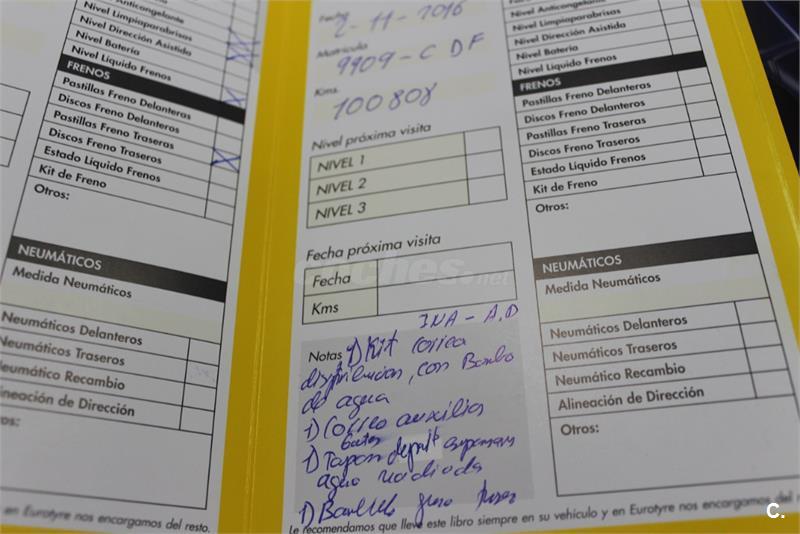 Anticongelante
Nivel Limpiaparabrisas
Nivel Dirección Asistida
Nivel Batería
Nivel Líquido Frenos
FRENOS
Pastillas Freno Delanteras
Discos Freno Delanteros
Pastillas Freno Traseras
Discos Freno Traseros
Estado Líquido Frenos
Kit de Freno
Otros:
NEUMÁTICOS
Medida Neumáticos
Neumáticos Delanteros
Neumáticos Traseros
Neumático Recambio
Alineación de Dirección
en Eurotyre nos encargamos del resto.
Fecha
2-11-2016
Matrícula
9909-CDF
Kms.
100808
Nivel próxima visita
NIVEL 1
NIVEL 2
NIVEL 3
Fecha próxima visita
Fecha
Kms
coches.net
INA - A.D
Notas 1) Kit correa
distribucion, con Bomba
de agua
1) Correo auxilia
1) Tapon
agua
1)
Nivel Anticongelante
Nivel Limpiaparabrisas
Nivel Dirección Asistida
Nivel Batería
Nivel Líquido Frenos
FRENOS
Pastillas Freno Delanteras
Discos Freno Delanteros
Pastillas Freno Traseras
Discos Freno Traseros
Estado Líquido Frenos
Kit de Freno
Otros:
NEUMÁTICOS
Medida Neumáticos
Neumáticos Delanteros
Neumáticos Traseros
Neumático Recambio
Alineación de Dirección
Otros:
Le recomendamos que lleve este libro siempre en su vehículo y en Eurotyre nos encargamos del
C.